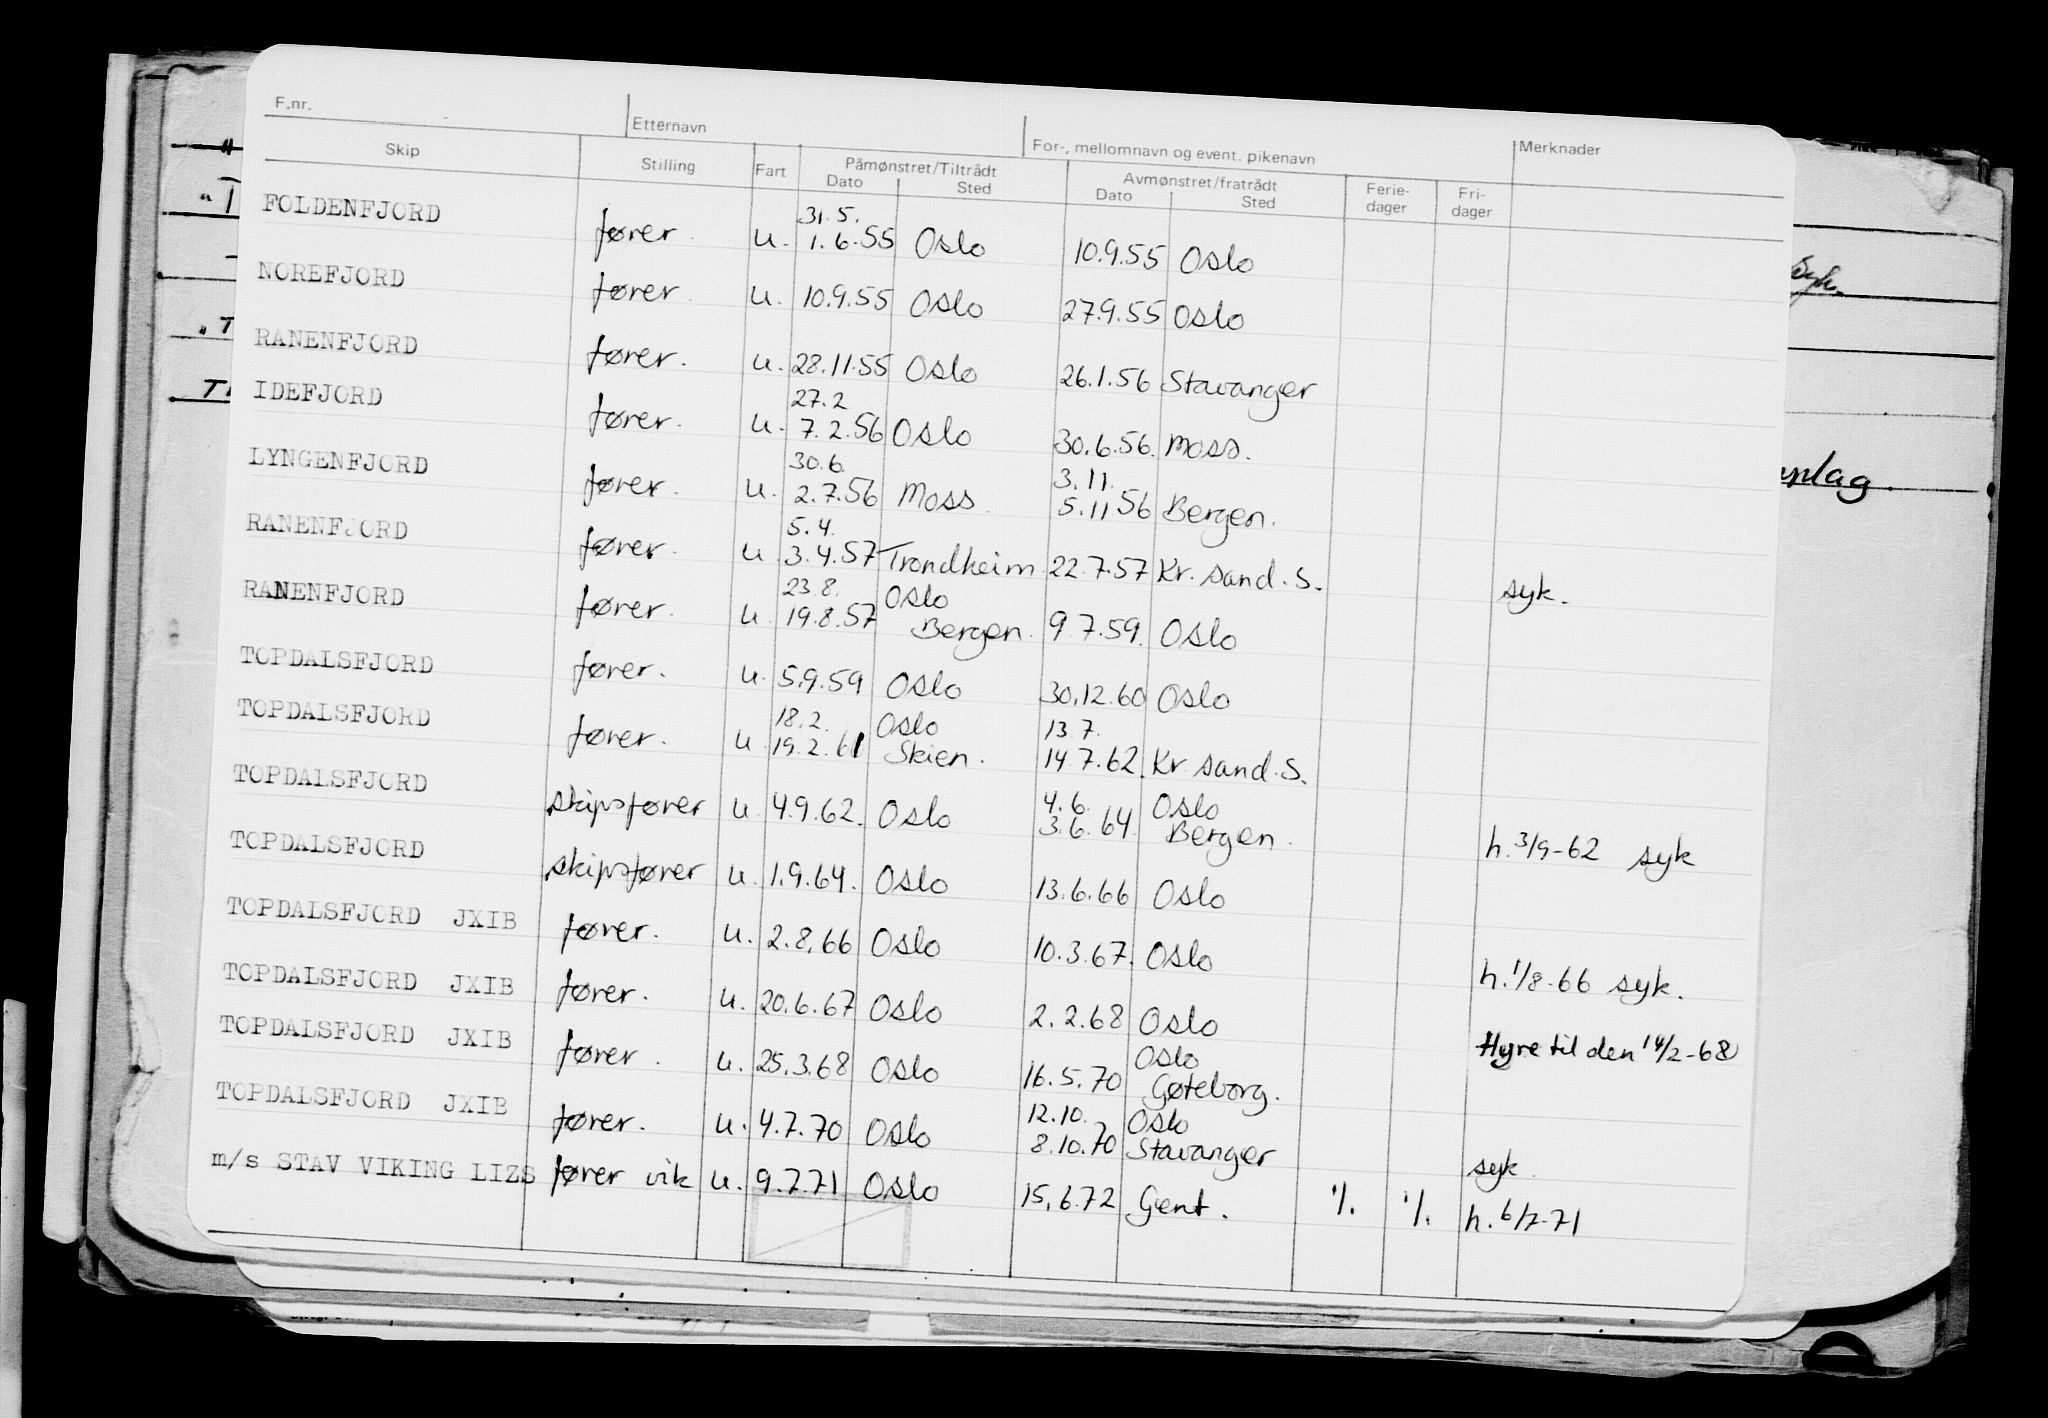 F.nr. Etternavn For-, mellomnavn og event. pikenavn Merknader
Skip Stilling Fart Påmønstret/Tiltrådt Avmønstret/fratrådt Ferie- Fri-
Dato Sted Dato Sted dager dager
31.5.
FOLDENFJORD fører. u. 1.6.55 Oslo 10.9.55 Oslo
NOREFJORD fører. u. 10.9.55 Oslo 27.9.55 Oslo
RANENFJORD fører. u. 28.11.55 Oslo 26.1.56 Stavanger
27.2
IDEFJORD fører. u. 7.2.56 Oslo 30.6.56. Moss.
30.6. 3.11.
LYNGENFJORD fører. u. 2.7.56 Moss 5.11 56 Bergen.
5.4.
RANENFJORD fører. u. 3.4.57 Trondheim 22.7.57 Kr. sand. S. syk.
23.8. Oslo
RANENFJORD fører. u. 19.8.57 Bergen. 9 7.59. Oslo
TOPDALSFJORD fører. u. 5.9.59 Oslo 30.12.60 Oslo
18.2. Oslo 13.7.
TOPDALSFJORD fører. u 19.2.61 Skien. 14.7.62. Kr. sand. S.
4.6. Oslo
TOPDALSFJORD skipsfører u. 4.9.62. Oslo 3.6.64. Bergen. h. 3/9-62 syk
TOPDALSFJORD skipsfører u. 1.9.64. Oslo 13.6.66 Oslo
TOPDALSFJORD JXIB fører. u. 2.8.66 Oslo 10.3.67. Oslo h. 1/8-66 syk.
TOPDALSFJORD JXIB fører. u. 20.6.67 Oslo 2.2.68 Oslo Hyre til den 14/2-68
Oslo
TOPDALSFJORD JXIB fører. u. 25.3.68 Oslo 16.5.70 Gøteborg.
12.10. Oslo
TOPDALSFJORD JXIB fører. u. 4.7.70 Oslo 8.10.70 Stavanger syk.
m/s STAV VIKING LIZS fører vik u. 9.7.71 Oslo 15.6.72 Gent. ./. ./. h. 6/7-71
syk.